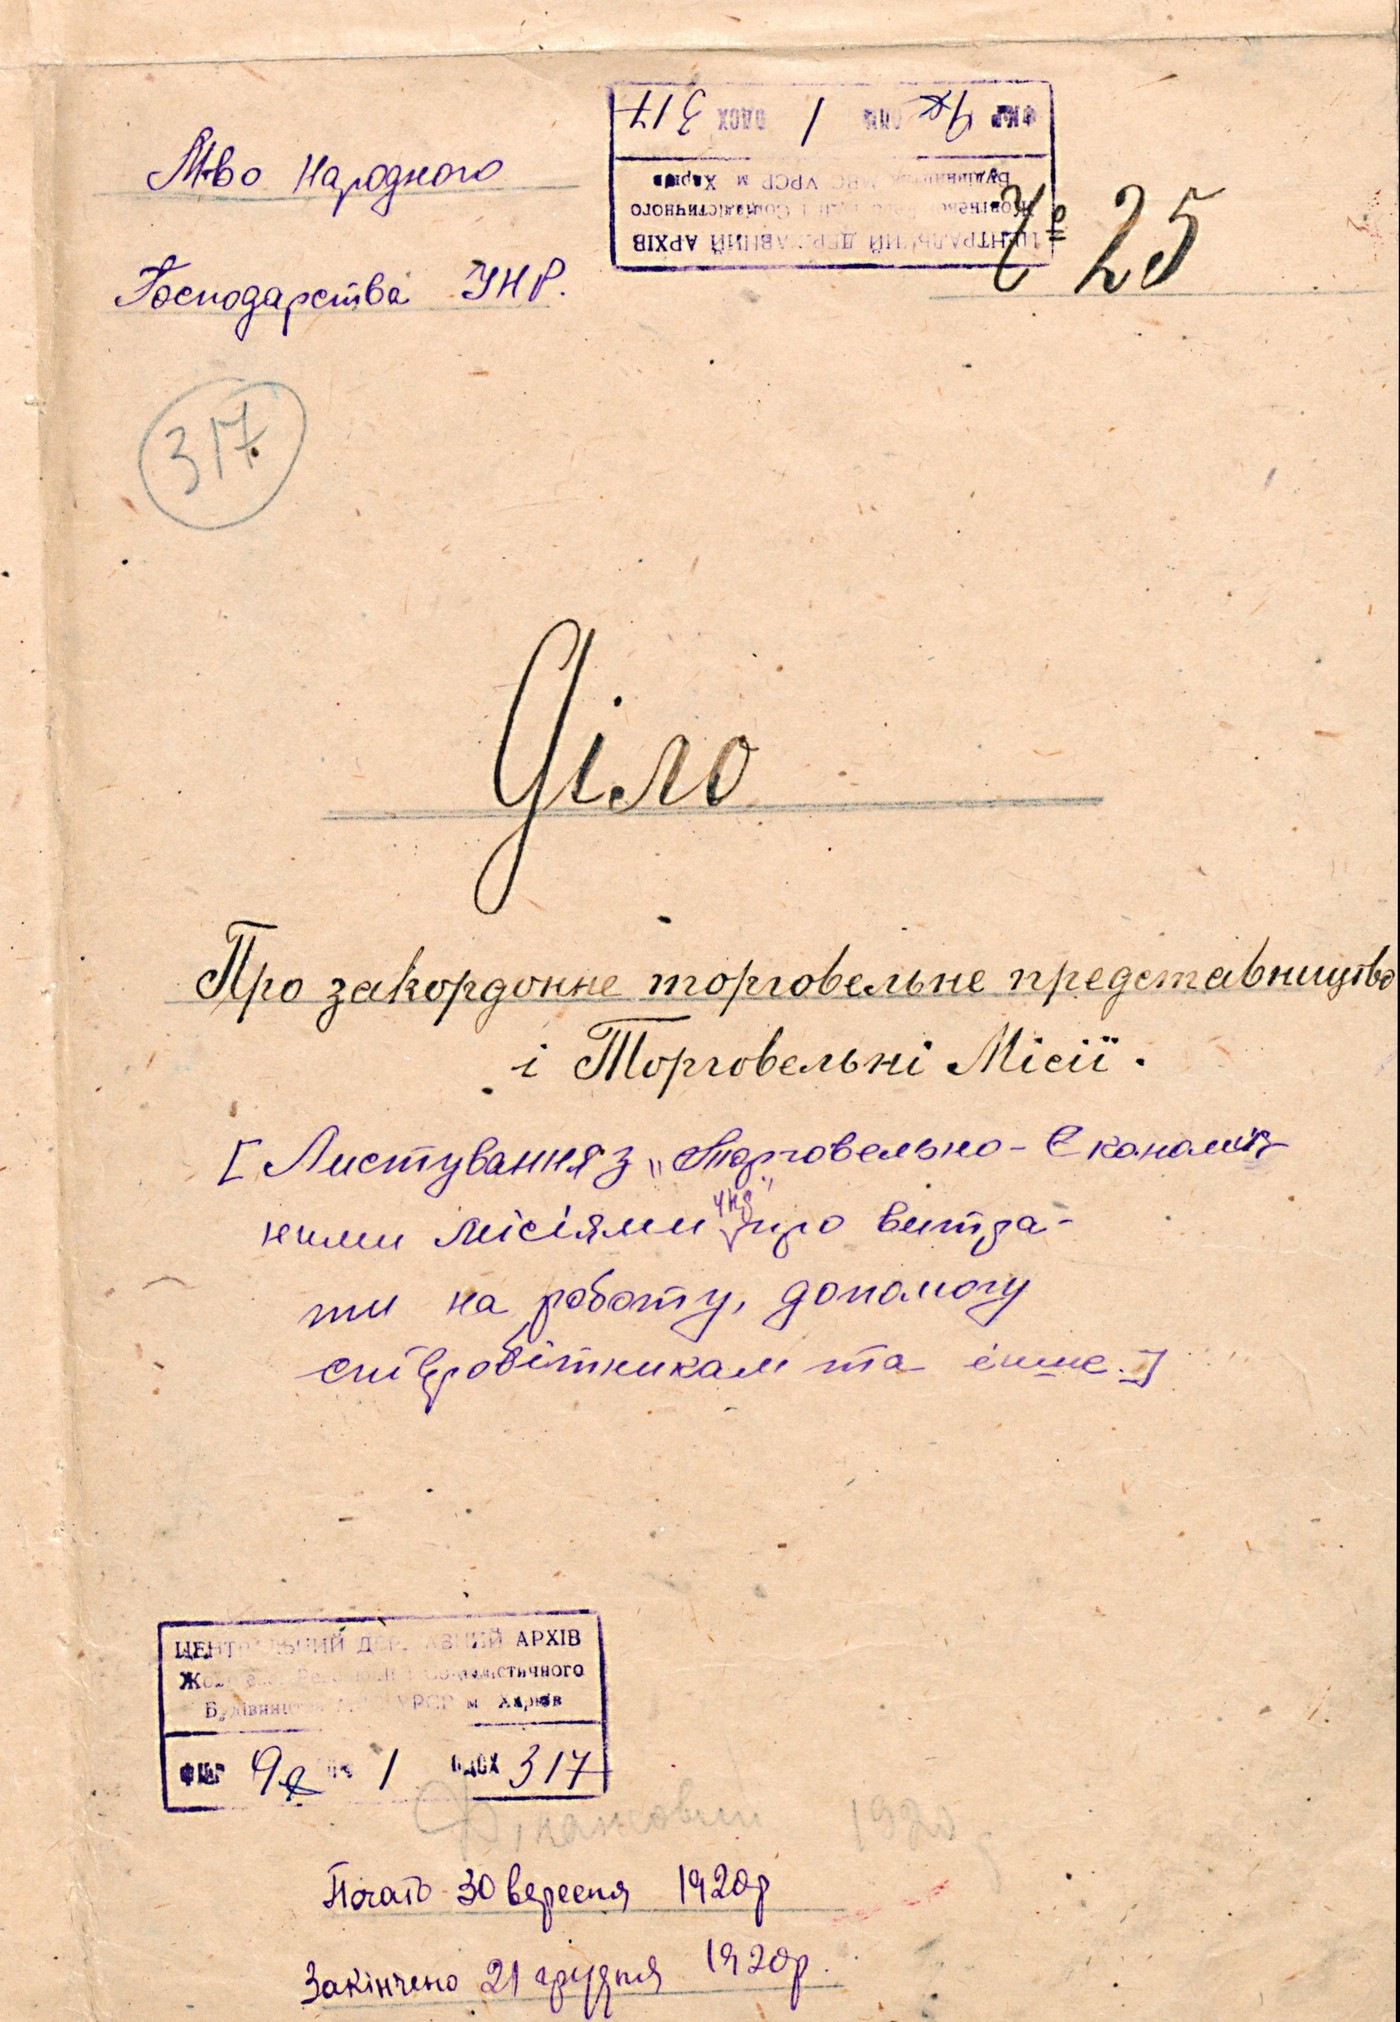 М-во Народного
Господарства УНР.
ФКР 9 1 ОДСХ 317
Будівництва МВС УРСР м Харків
Жовтневої Револ і Соціалістичного
ЦЕНТРАЛЬНИЙ ДЕРЖАВНИЙ АРХІВ
№ 25
317
Діло
Про закордонне торговельне представництво
і Торговельні Місії.
[Листування з „Торговельно-Економіч-
ними місіями" УНР про витра-
ти на роботу, допомогу
співробітникам та інше.]
ЦЕНТРАЛЬНИЙ ДЕРЖАВНИЙ АРХІВ
Жовтневої Революції і Соціалістичного
Будівництва УРСР м Харків
ФКР 9 1 ОДСХ 317
1920
Почато 30 вересня 1920р
Закінчено 21 грудня 1920р.